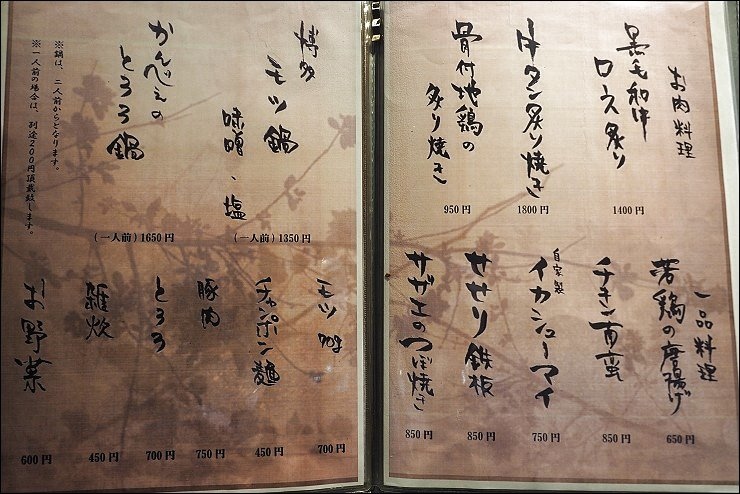 お肉料理
黒毛和牛
ロース炙り
1400円
牛タン炙り焼き
1800円
骨付地鶏の
炙り焼き
950円
一品料理
若鶏の唐揚げ
650円
チキン南蛮
850円
自家製
イカシューマイ
750円
せせり鉄板
850円
サザエのつぼ焼き
850円
博多
モツ鍋
味噌、塩
(一人前)1350円
かんべえの
とろろ鍋
(一人前)1650円
※鍋は、二人前からとなります。
※一人前の場合は、別途200円頂戴致します。
モツ
700円
チャンポン麺
450円
豚肉
750円
とろろ
700円
雑炊
450円
お野菜
600円